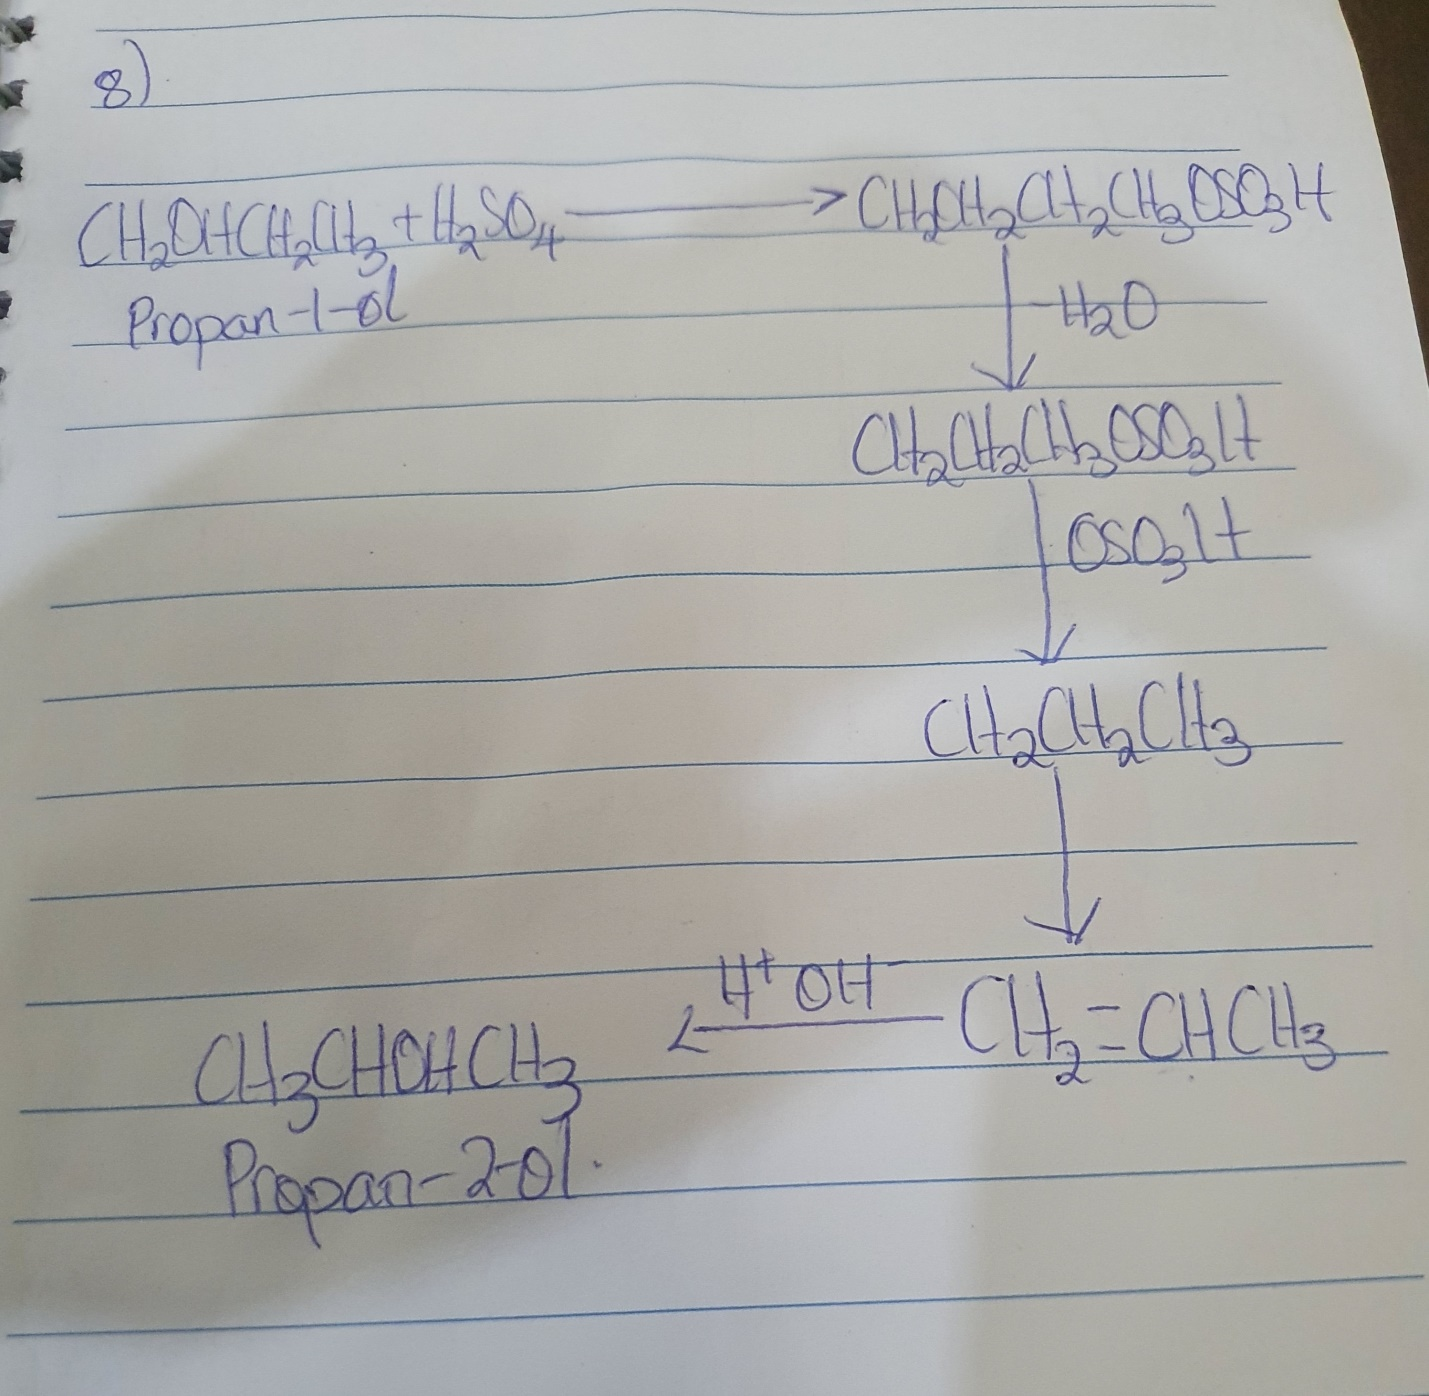 8)
CH₂OHCH₂CH₃ + H₂SO₄ ⟶ CH₂CH₂CH₂CH₃OSO₃H
Propan-1-ol
-H₂O
CH₂CH₂CH₃OSO₃H
OSO₃H
CH₂CH₂CH₃
CH₂=CHCH₃
H⁺ OH⁻
CH₃CHOHCH₃
Propan-2-ol.